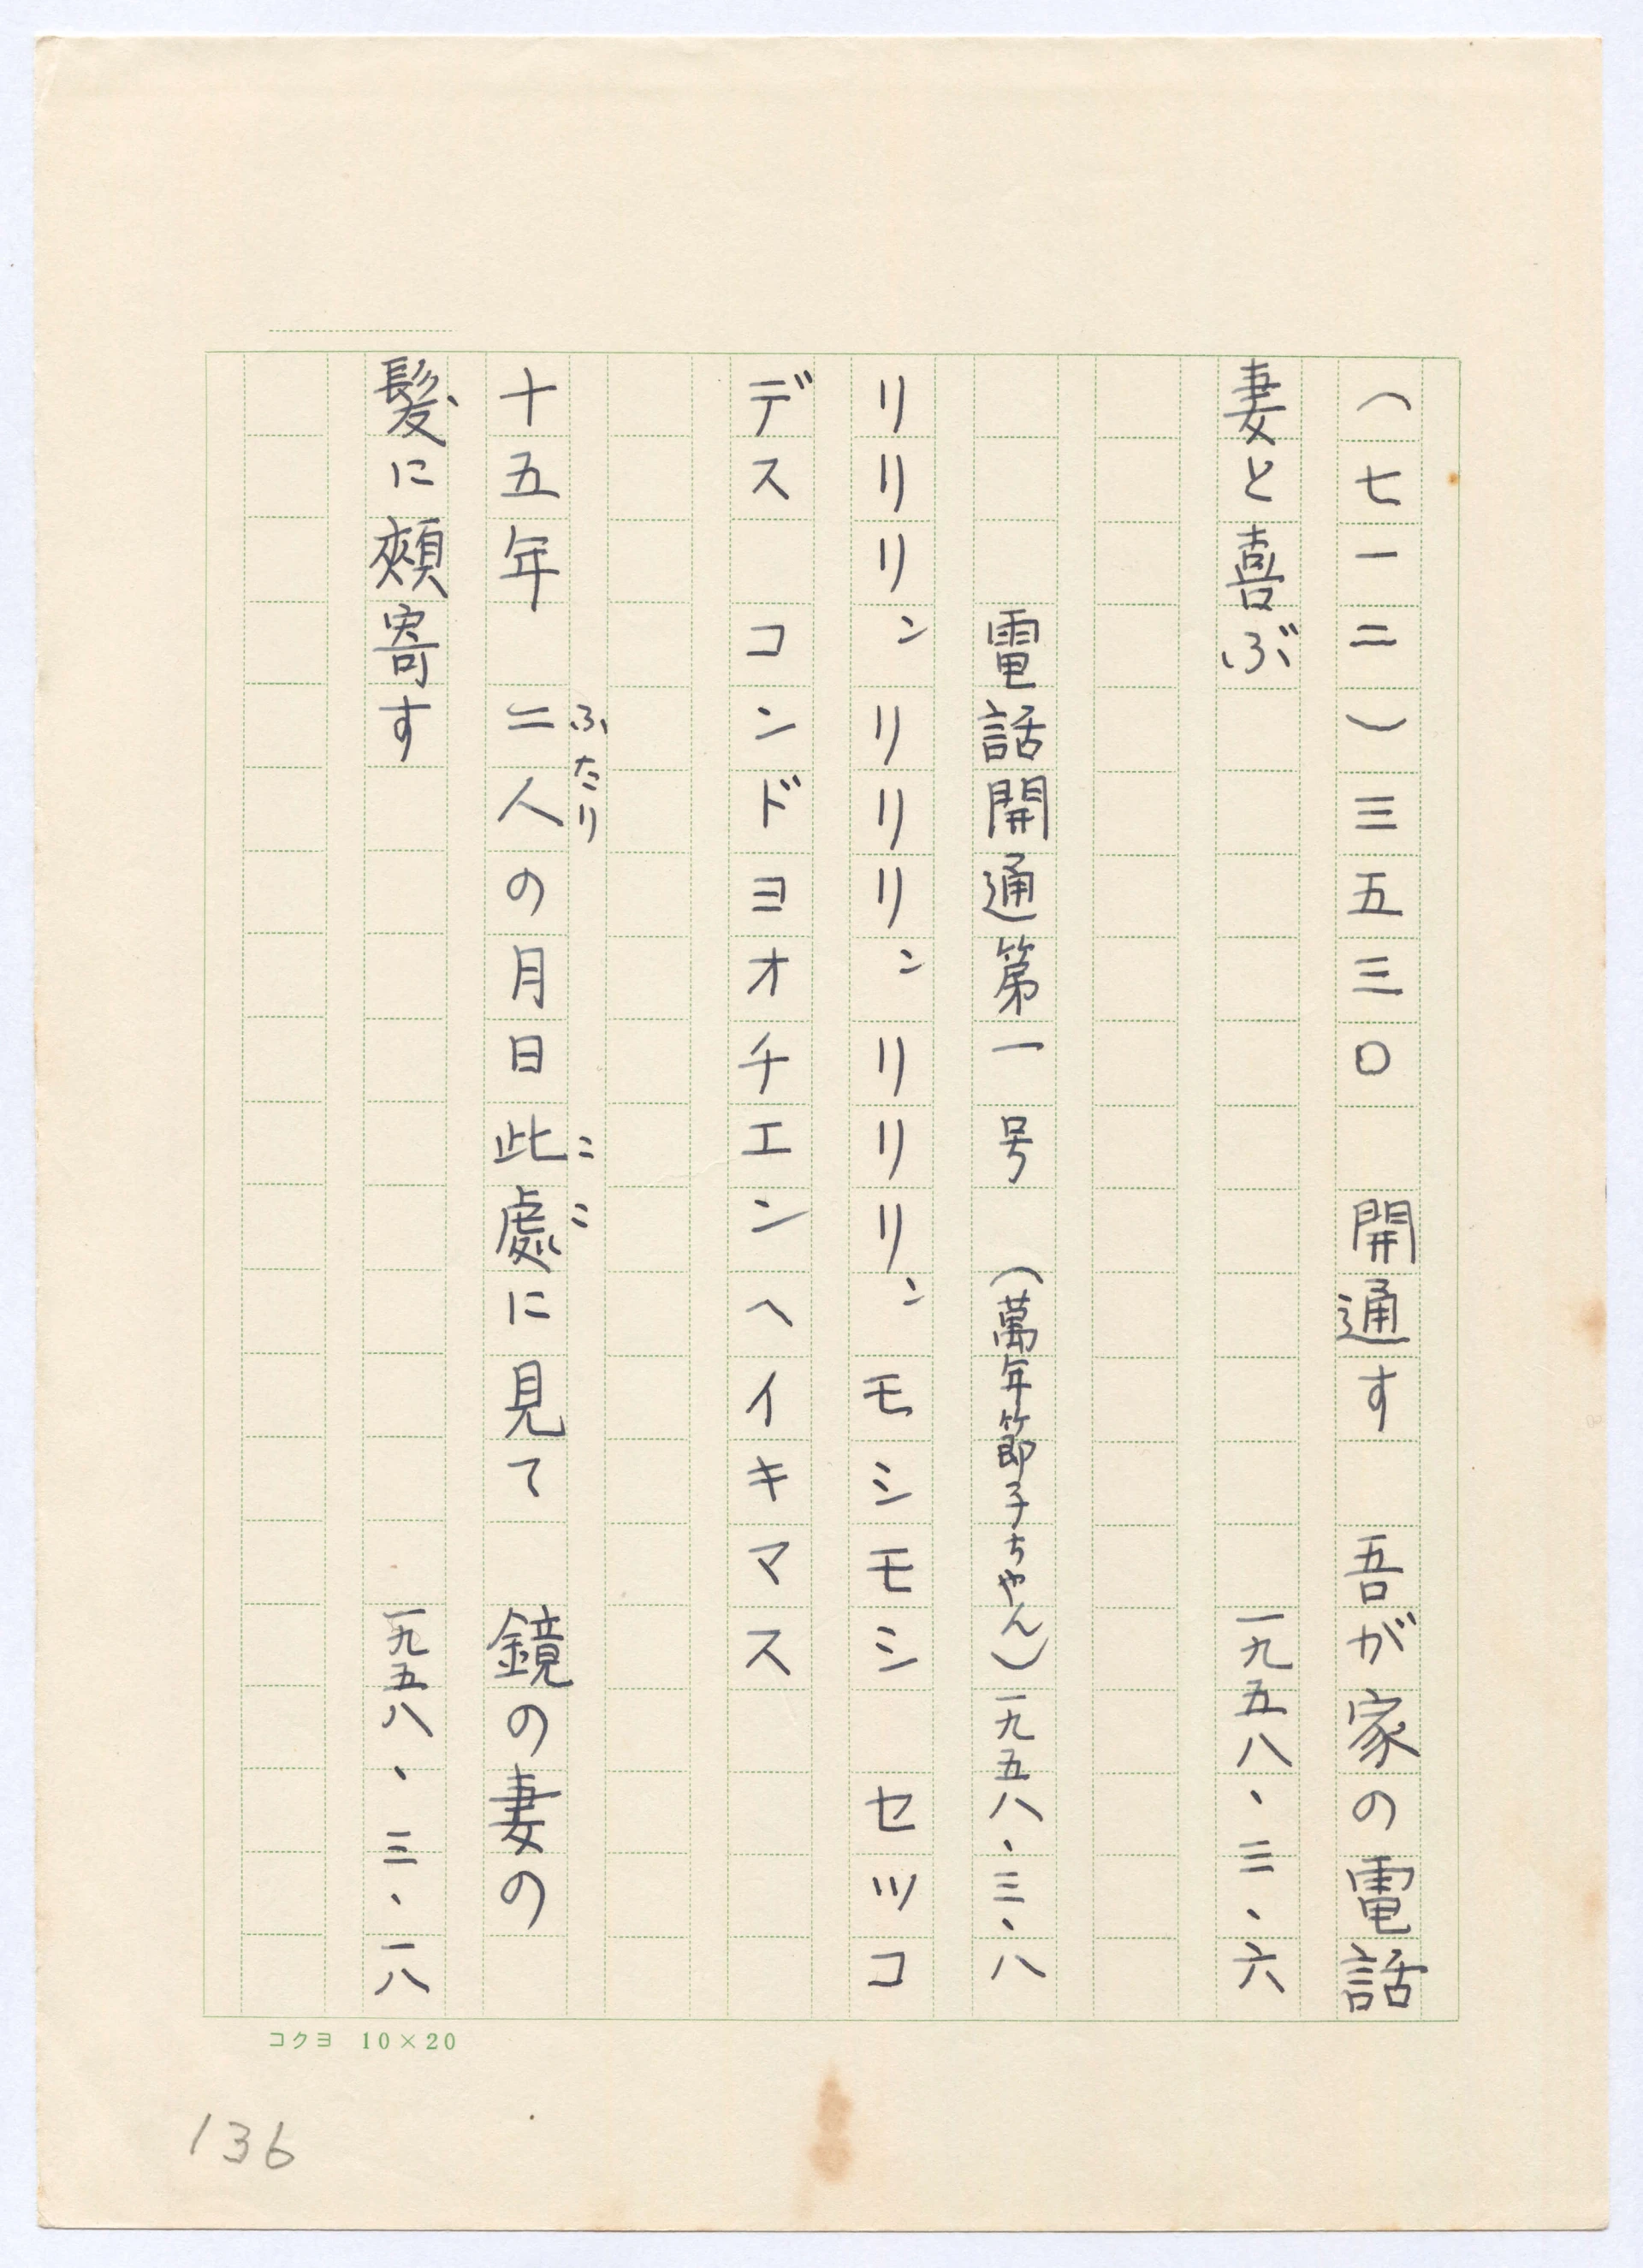 (七一二)三五三〇 開通す 吾が家の電話
妻と喜ぶ 一九五八・三・六
電話開通第一号 (萬年節子ちゃん)一九五八・三・八
リリリリン リリリリン リリリリン モシモシ セツコ
デス コンドヨオチエンヘイキマス
十五年 二人の月日此処に見て 鏡の妻の
ふたり
ここ
髪に頰寄す 一九五八・三・一八
コクヨ 10×20
136